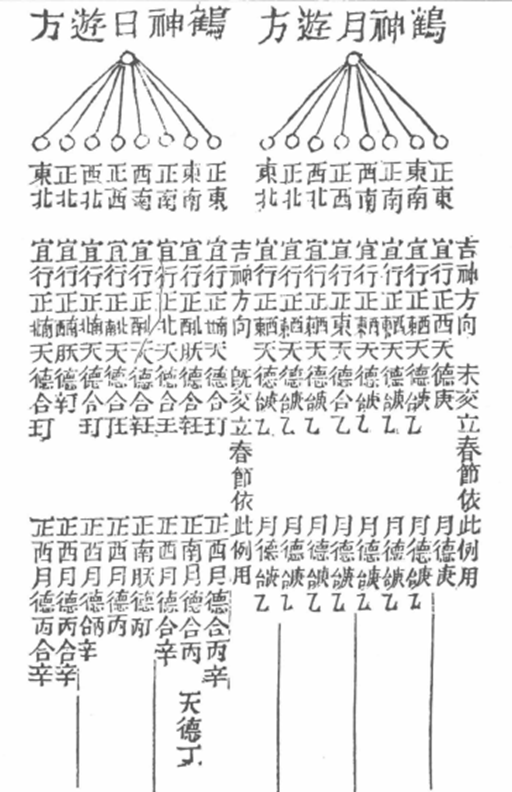 鶴神月遊方
正東
東南
正南
西南
正西
西北
正北
東北
吉神方向 未交立春節依此例用
宜行正西天德庚 月德庚
宜行正西東天德庚合乙 月德庚合乙
宜行正西東天德庚合乙 月德庚合乙
宜行正西東天德庚合乙 月德庚合乙
宜行正東天德合乙 月德庚合乙
宜行正西東天德庚合乙 月德庚合乙
宜行正西東天德庚合乙 月德庚合乙
宜行正西東天德庚合乙 月德庚合乙
鶴神日遊方
正東
東南
正南
西南
正西
西北
正北
東北
吉神方向 既交立春節依此例用
宜行正天德合 正西月德合丙辛
宜行正德合 正南月德合丙 天德丁
宜行正北天德合壬 正西月德合辛
宜行正天德合 正南德
宜行正南北天德合 正西月德丙
宜行正天德合 正西月德丙合辛
宜行正德 正西月德丙合辛
宜行正天德合 正西月德丙合辛